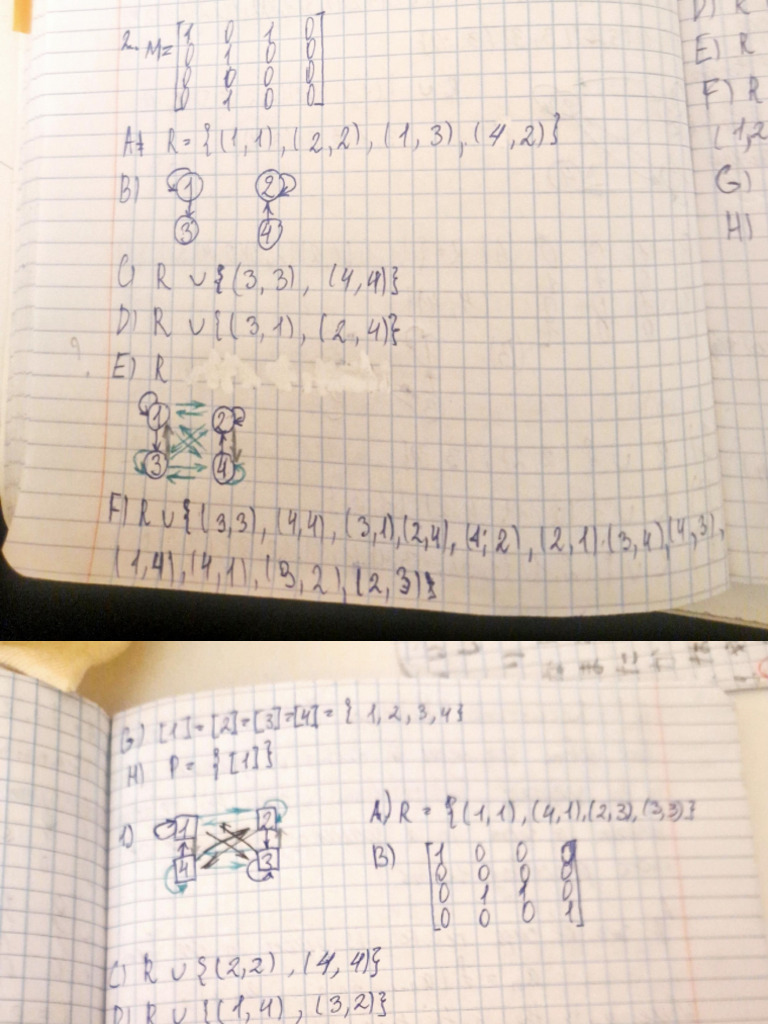 2. M= [1 0 1 0
0 1 0 0
0 0 0 0
0 1 0 0]
A) R = {(1,1), (2,2), (1,3), (4,2)}
B) 1 2
3 4
C) R ∪ {(3,3), (4,4)}
D) R ∪ {(3,1), (2,4)}
E) R
1 2
3 4
F) R ∪ {(3,3), (4,4), (3,1), (2,4), (1;2), (2,1), (3,4), (4,3),
(1,4), (4,1), (3,2), (2,3)}
D) R
E) R
F) R
(1,2
G)
H)
G) [1]=[2]=[3]=[4] = { 1, 2, 3, 4}
H) P = {[1]}
1) 1 2
4 3
A) R = {(1,1), (4,1), (2,3), (3,3)}
B) [1 0 0 0
0 0 0 0
0 1 1 0
0 0 0 1]
C) R ∪ {(2,2), (4,4)}
D) R ∪ {(1,4), (3,2)}